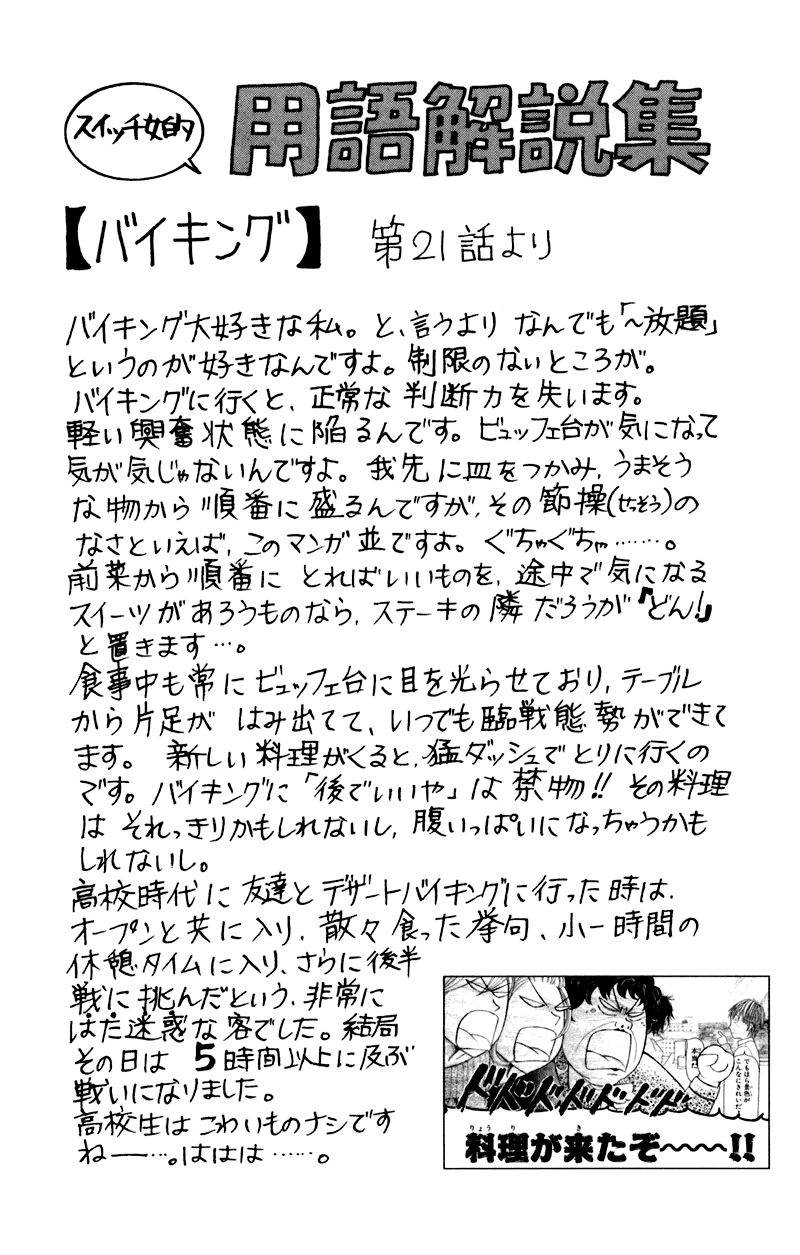 スイッチ女的
用語解説集
【バイキング】 第21話より
バイキング大好きな私。と、言うより なんでも「〜放題」
というのが好きなんですよ。制限のないところが。
バイキングに行くと、正常な判断力を失います。
軽い興奮状態に陥るんです。ビュッフェ台が気になって
気が気じゃないんですよ。我先に皿をつかみ、うまそう
な物から順番に盛るんですが、その節操(せっそう)の
なさといえば、このマンガ並ですよ。ぐちゃぐちゃ………。
前菜から順番に とればいいものを、途中で気になる
スイーツがあろうものなら、ステーキの隣だろうが『どん!』
と置きます…。
食事中も常にビュッフェ台に目を光らせており、テーブル
から片足が はみ出てて、いつでも臨戦態勢ができて
ます。 新しい料理がくると、猛ダッシュでとりに行くの
です。バイキングに「後でいいや」は禁物!! その料理
は それっきりかもしれないし、腹いっぱいになっちゃうかも
しれないし。
高校時代に友達とデザートバイキングに行った時は、
オープンと共に入り、散々食った挙句、小一時間の
休憩タイムに入り、さらに後半
戦に挑んだという、非常に
はた迷惑な客でした。結局
その日は 5時間以上に及ぶ
戦いになりました。
高校生は こわいものナシです
ねー…。ははは……。
でもほら景色が
こんなにきれいだ
本当だ
ドドドドドドド
料理が来たぞ〜〜〜〜!!
りょうり き